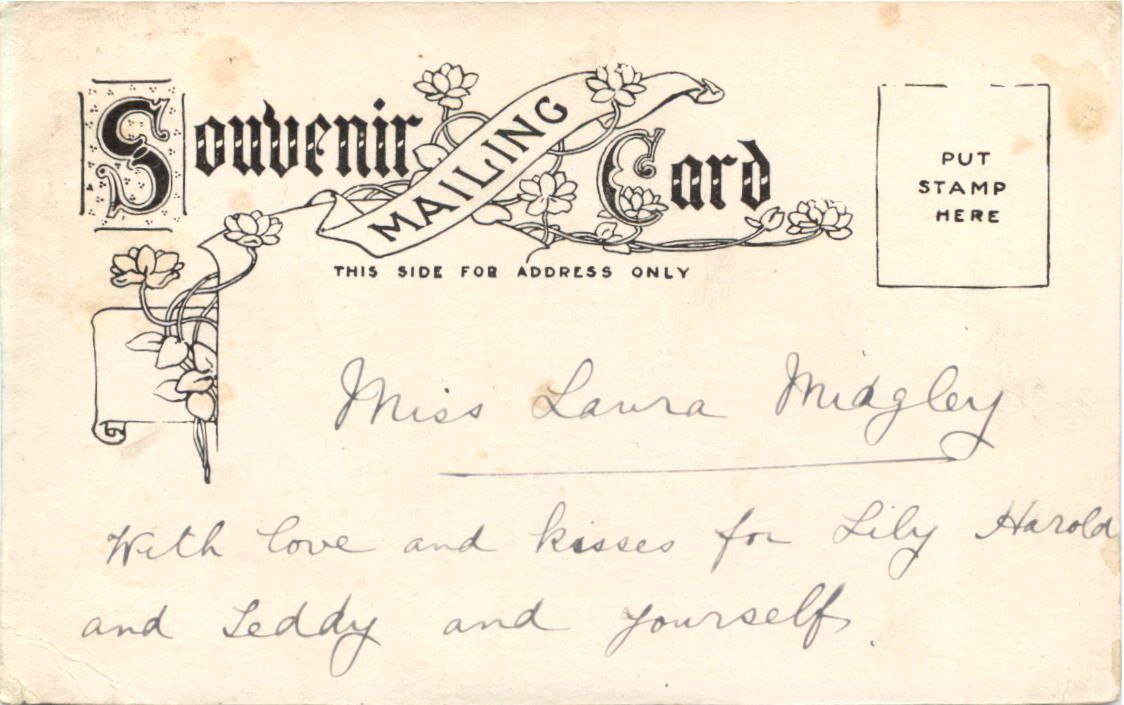 Souvenir MAILING Card
THIS SIDE FOR ADDRESS ONLY
PUT
STAMP
HERE
Miss Laura Midgley
With love and kisses for Lily Harold
and Teddy and yourself.